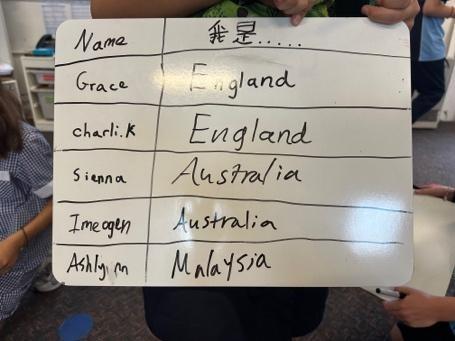 Name 我是......
Grace England
charli.K England
Sienna Australia
Imeogen Australia
Ashlynn Malaysia